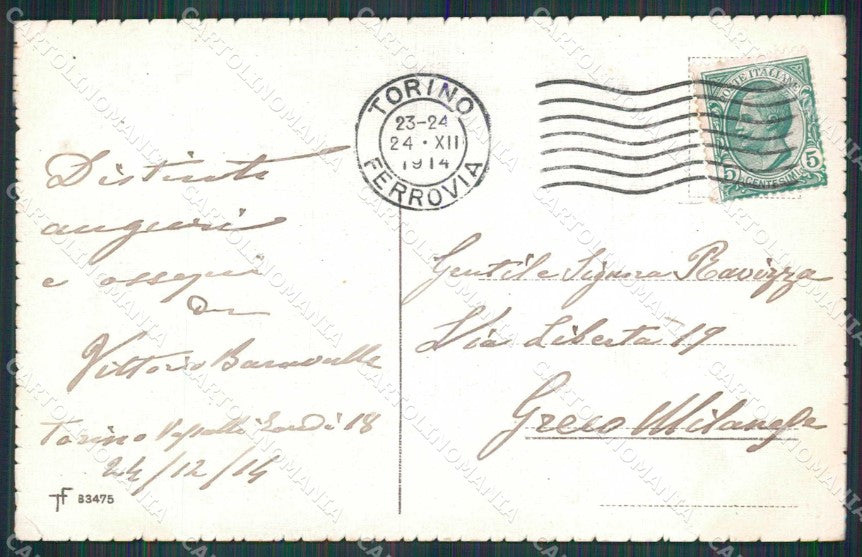 Distinti
auguri
e ossequi
da
Vittorio Baravalle
Torino 18
24/12/14
83475
TORINO
23-24
24 · XII
1914
FERROVIA
POSTE ITALIANE
5 CENTESIMI 5
Gentile Signora Ravizza
Via Libertà 19
Greco Milanese
CARTOLINOMANIA